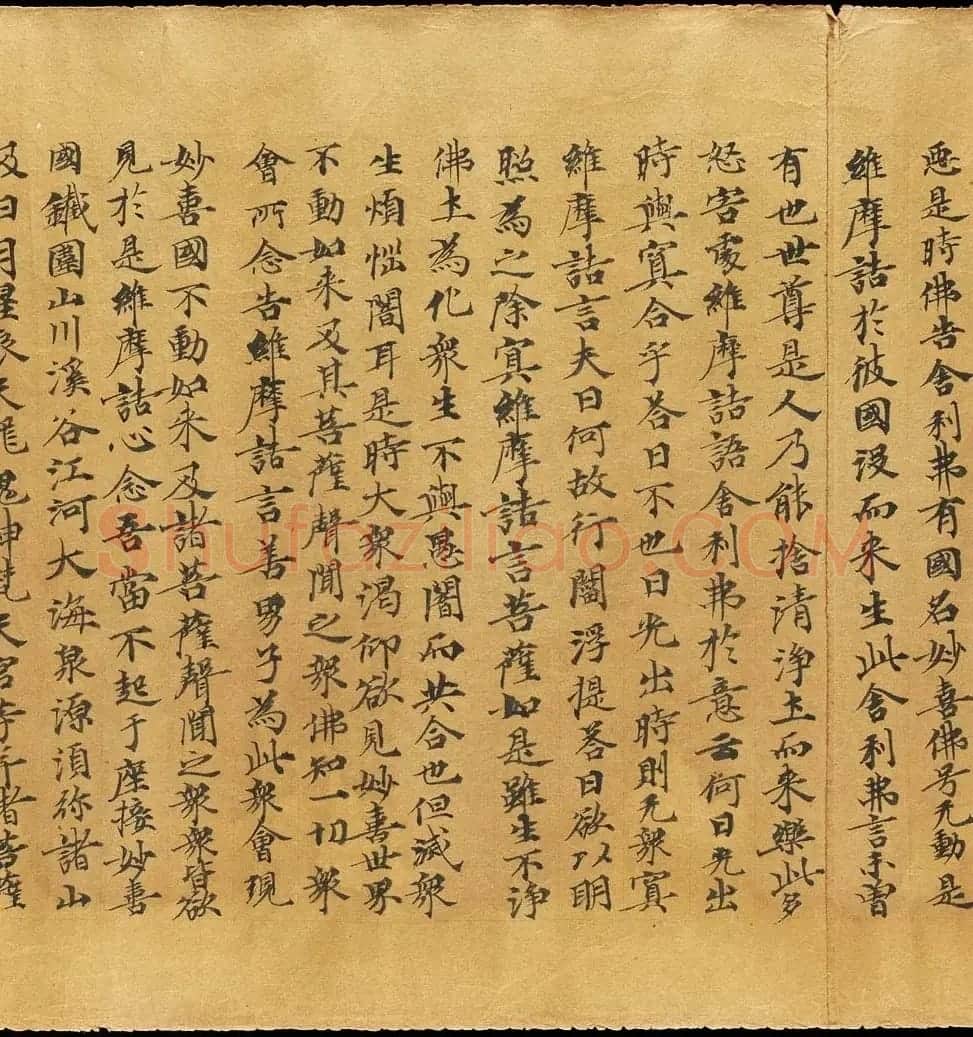 惡是時佛告舍利弗有國名妙喜佛号无動是
維摩詰於彼國没而来生此舍利弗言未曽
有也世世尊是人乃能捨清浄土而来樂此多
怒害處維摩詰語舍利弗於意云何日光出
時與冥合乎荅曰不也日光出時則无衆冥
維摩詰言夫日何故行閻浮提荅曰欲以明
照為之除冥維摩詰言菩薩如是雖生不浄
佛土為化衆生不與愚闇而共合也但滅衆
生煩惱闇耳是時大衆渴仰欲見妙喜世界
不動如来及其菩薩聲聞之衆佛知一切衆
會所念告維摩詰言善男子為此衆會現
妙喜國不動如来及諸菩薩聲聞之衆衆皆欲
見於是維摩詰心念吾當不起于座接妙喜
國鐵圍山川溪谷江河大海泉源須弥諸山
及日月星辰天龍鬼神梵天宮等并諸菩薩
Shufaziliao.COM